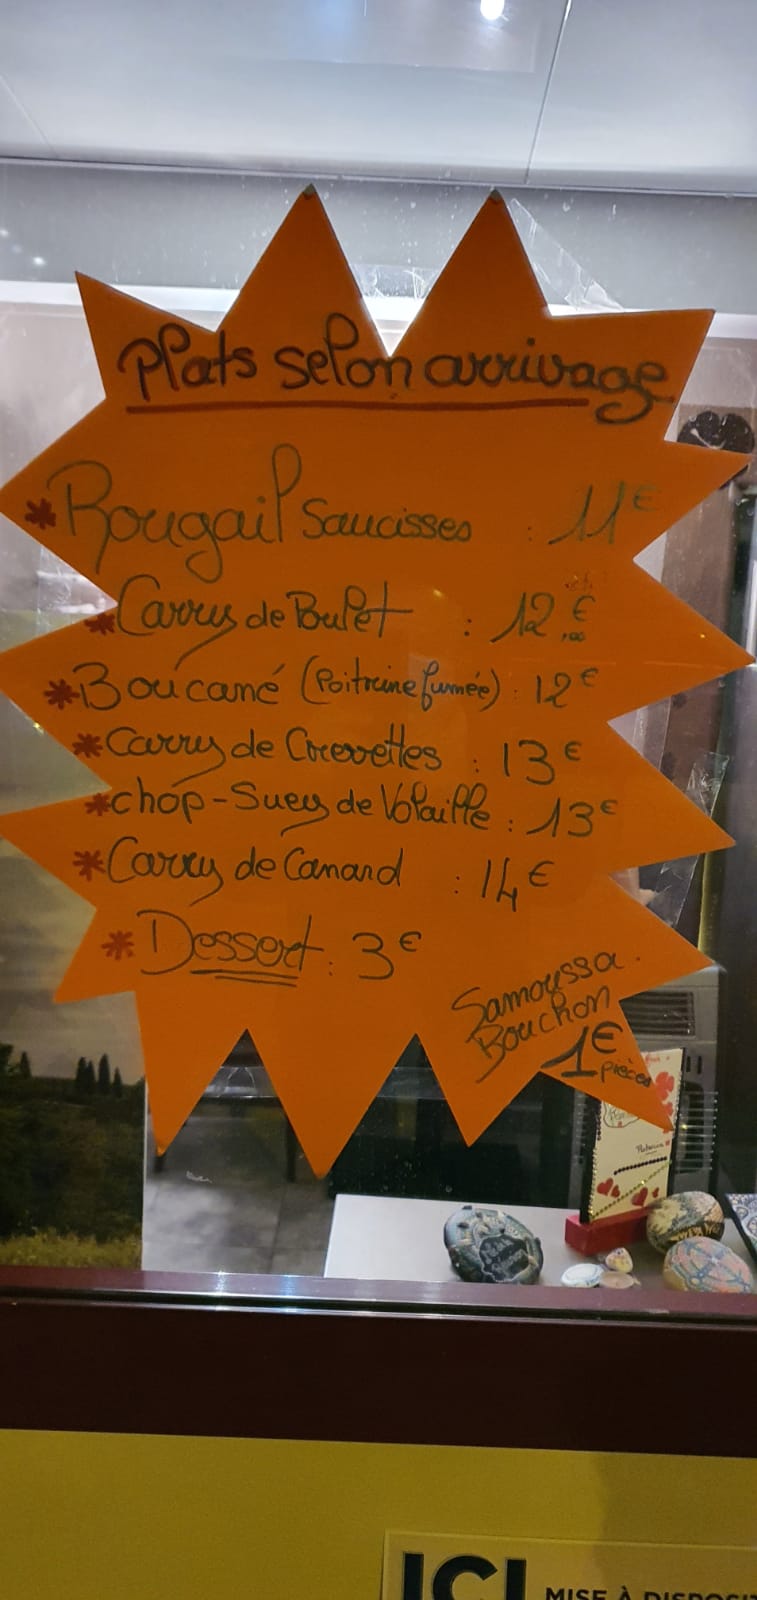 Plats selon arrivage
* Rougail saucisses : 11€
* Carry de Poulet : 12€,00
* Boucané (Poitrine fumée) : 12€
* Carry de Crevettes : 13€
* chop-Suey de Volaille : 13€
* Carry de Canard : 14€
* Dessert : 3€
Samoussa
Bouchon
1€
pièces
ICI
MISE À DISPOSIT